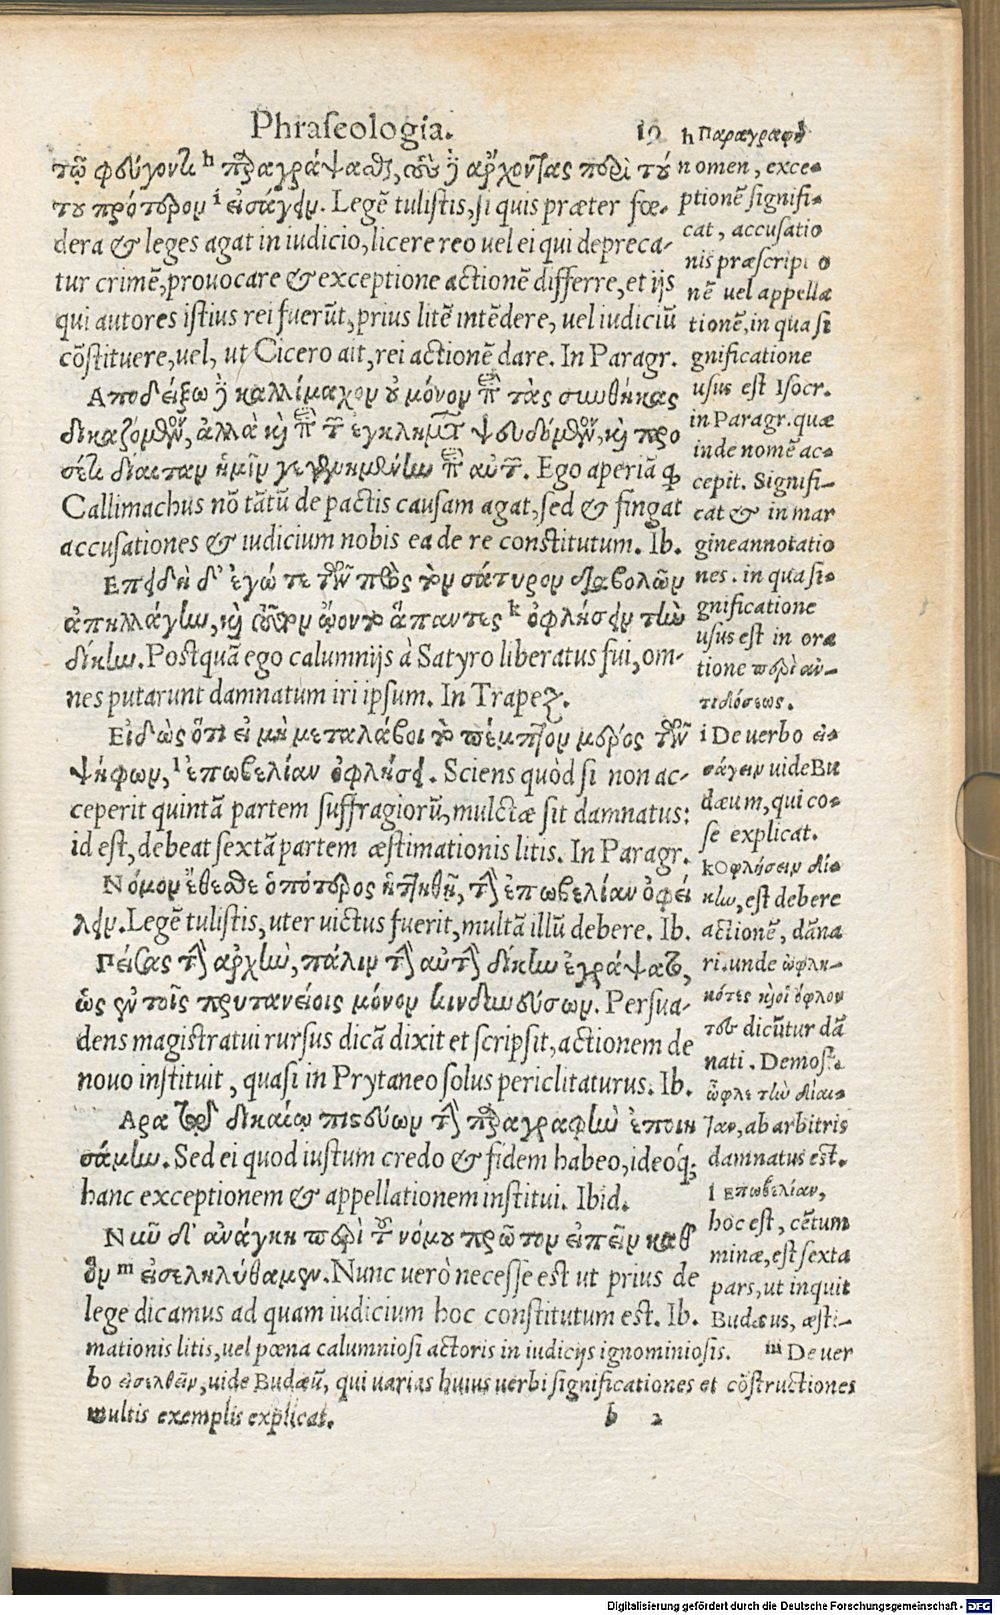 Phraseologia. 19
τῷ φεύγοντι ʰ παραγράψασθαι, τοὺς δὲ ἄρχοντας περὶ τού
του πρότερον ⁱ εἰσάγειν. Legē tulistis, si quis præter fœ-
dera & leges agat in iudicio, licere reo uel ei qui depreca-
tur crimē, prouocare & exceptione actionē differre, et ijs
qui autores istius rei fuerūt, prius litē intēdere, uel iudiciū
cōstituere, uel, ut Cicero ait, rei actionē dare. In Paragr.
Αποδείξω δὲ καλλίμαχον ὀ μόνον παρὰ τὰς συνθήκας
δικαζόμενον, ἀλλὰ καὶ περὶ τῶν εγκλημάτων ψευδόμενον, καὶ προ
σέτι δίαιταν ἡμῖν γεγενημένην περὶ αὐτῶν. Ego aperiā ꝙ
Callimachus nō tātū de pactis causam agat, sed & fingat
accusationes & iudicium nobis ea de re constitutum. Ib.
Επειδὴ δ' ἐγώ τε τῶν πρὸς τὸν σάτυρον διαβολῶν
ἀπηλλάγην, καὶ τοῦτον ᾤοντο ἅπαντες ᵏ ὀφλήσειν τὴν
δίκην. Postquā ego calumnijs à Satyro liberatus fui, om-
nes putarunt damnatum iri ipsum. In Trapez.
Εἰδὼς ὅτι εἰ μὴ μεταλάβοι τὸ πέμπτον μέρος τῶν
ψήφων, ˡ ἐπωβελίαν ὀφλήσει. Sciens quòd si non ac-
ceperit quintā partem suffragiorū, mulctæ sit damnatus:
id est, debeat sextā partem æstimationis litis. In Paragr.
Νόμον ἔθεσθε ὁπότερος ἡττηθῇ, τὴν ἐπωβελίαν ὀφεί
λειν. Legē tulistis, uter uictus fuerit, multā illū debere. Ib.
Πείσας τὴν ἀρχὴν, πάλιν τὴν αὐτὴν δίκην ἐγράψατο,
ὡς ἐν τοῖς πρυτανείοις μόνον κινδυνεύσων. Persua-
dens magistratui rursus dicā dixit et scripsit, actionem de
nouo instituit, quasi in Prytaneo solus periclitaturus. Ib.
δικαίῳ πιστεύων τὴν παραγραφὴν ἐποιη
σάμην. Sed ei quod iustum credo & fidem habeo, ideoq́;
hanc exceptionem & appellationem institui. Ibid.
Νῦν δ' ἀνάγκη περὶ τοῦ νόμου πρῶτον εἰπεῖν καθ'
ὃν ᵐ εἰσεληλύθαμεν. Nunc uerò necesse est ut prius de
lege dicamus ad quam iudicium hoc constitutum est. Ib.
h Παραγραφὴ
nomen, exce-
ptionē signifi-
cat, accusatio
nis præscriptio
nē uel appella
tionē, in qua si
gnificatione
usus est Isocr.
in Paragr. quæ
inde nomē ac-
cepit. Signifi-
cat & in mar
gine annotatio
nes. in qua si-
gnificatione
usus est in ora
tione περὶ ἀν-
τιδόσεως.
i De uerbo εἰσ-
σάγειν uide Bu
dæum, qui co-
se explicat.
k Οφλήσειν δί-
κην, est debere
actionē, dāna
ri. unde ὠφλη-
κότες καὶ οἱ ὄφλον
τες dicūtur dā
nati. Demost.
ὦφλε τὴν δίαι-
ταν, ab arbitris
damnatus est.
l Επωβελίαν,
hoc est, cētum
minæ, est sexta
pars, ut inquit
Budæus, æsti-
mationis litis, uel pœna calumniosi actoris in iudicijs ignominiosis. m De uer
bo εἰσελθεῖν, uide Budæū, qui uarias huius uerbi significationes et cōstructiones
multis exemplis explicat. b 2
Digitalisierung gefördert durch die Deutsche Forschungsgemeinschaft - DFG